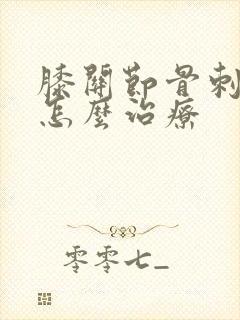 膝關節骨刺
怎麼治療
零零七_